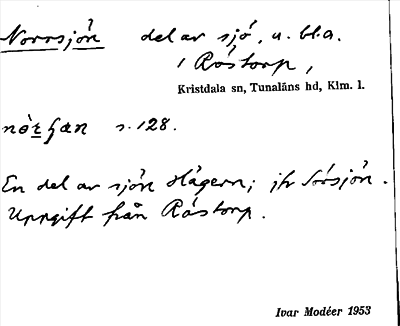 Norrsjön del av sjö, u. bl.a.
i Råstorp,
Kristdala sn, Tunaläns hd, Klm. l.
s. 128.
En del av sjön Hågern; jfr Sörsjön.
Uppgift från Råstorp.
Ivar Modéer 1953